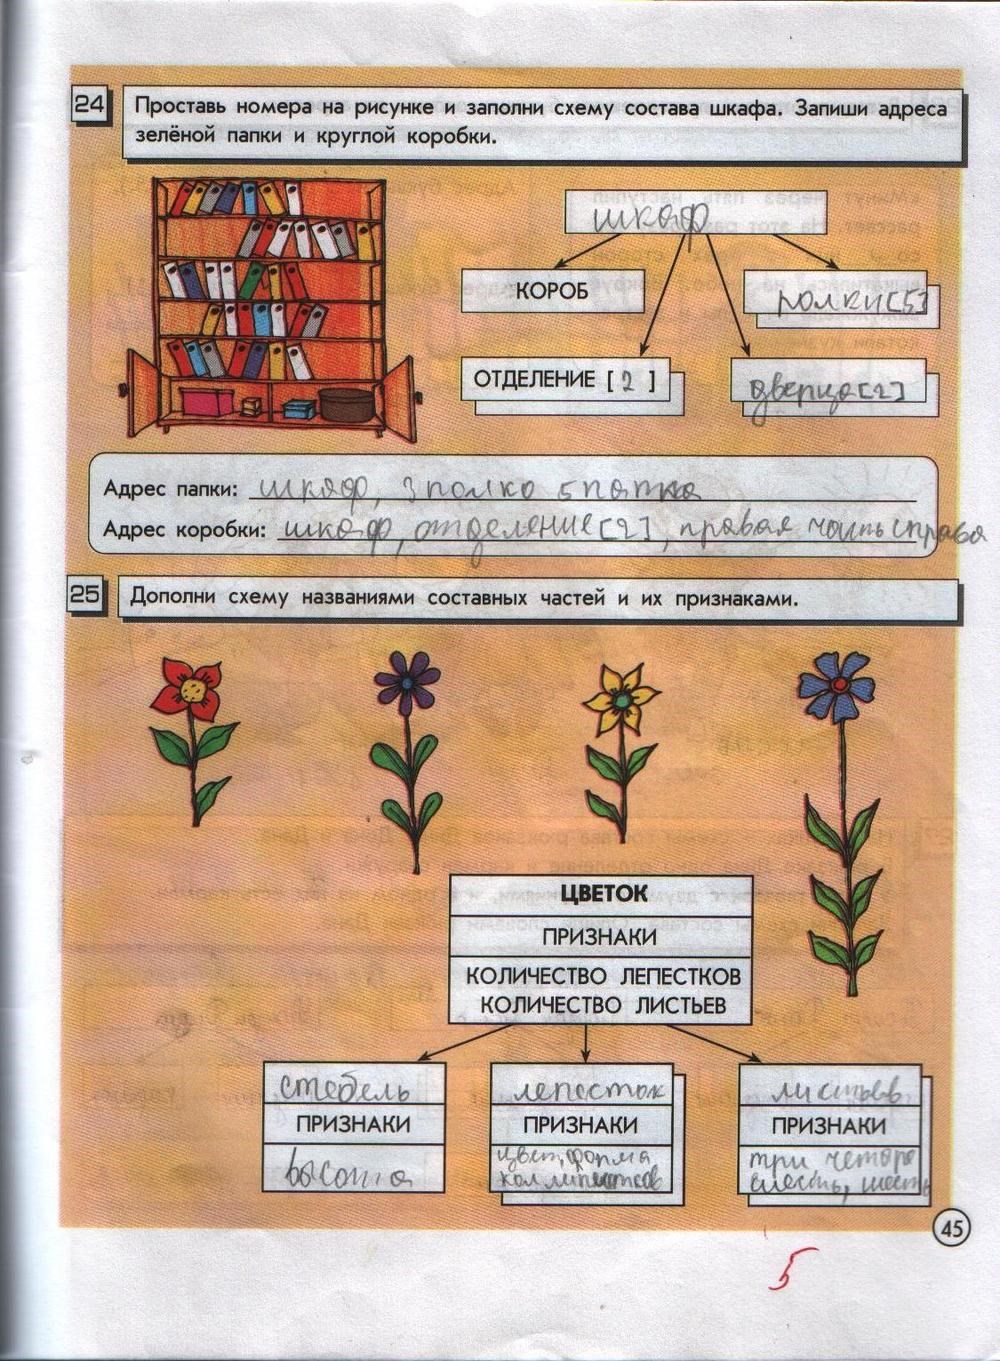 24
Проставь номера на рисунке и заполни схему состава шкафа. Запиши адреса
зелёной папки и круглой коробки.
шкаф
КОРОБ
полки[5]
ОТДЕЛЕНИЕ [2]
дверца[2]
Адрес папки: шкаф, 3 полка 5 папка
Адрес коробки: шкаф, отделение[2], правая часть справа
25
Дополни схему названиями составных частей и их признаками.
ЦВЕТОК
ПРИЗНАКИ
КОЛИЧЕСТВО ЛЕПЕСТКОВ
КОЛИЧЕСТВО ЛИСТЬЕВ
стебель
ПРИЗНАКИ
высота
лепесток
ПРИЗНАКИ
цвет, форма
листьев
ПРИЗНАКИ
три четоре
шесть
45
5